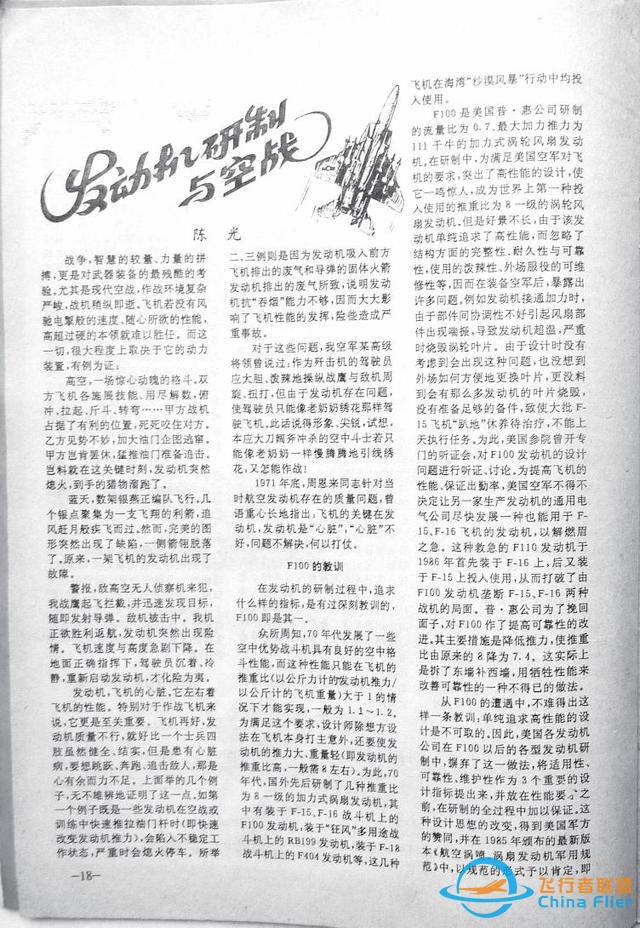 发动机研制
与空战
陈 光
战争,智慧的较量、力量的拼
搏,更是对武器装备的最残酷的考
验。尤其是现代空战,作战环境复杂
严峻,战机稍纵即逝。飞机若没有风
驰电掣般的速度、随心所欲的性能,
高超过硬的本领就难以胜任。而这
一切,很大程度上取决于它的动力
装置,有例为证:
高空,一场惊心动魄的格斗。双
方飞机各施展技能、用尽解数,俯
冲、拉起、斤斗、转弯……甲方战机
占据了有利的位置,死死咬住对方。
乙方见势不妙,加大油门企图逃窜。
甲方岂肯罢休,猛推油门准备追击。
岂料就在这关键时刻,发动机突然
熄火,到手的猎物溜跑了。
蓝天,数架银燕正编队飞行。几
个银点聚集为一支飞翔的利箭,追
风赶月般疾飞而过。然而,完美的图
形突然出现了缺陷,一侧箭翎脱落
了。原来,一架飞机的发动机出现了
故障。
警报,敌高空无人侦察机来犯,
我战鹰起飞拦截,并迅速发现目标,
随即发射导弹。敌机被击中。我机
正欲胜利返航,发动机突然出现险
情。飞机速度与高度急剧下降。在
地面正确指挥下,驾驶员沉着、冷
静,重新启动发动机,才化险为夷。
发动机,飞机的心脏。它左右着
飞机的性能。特别对于作战飞机来
说,它更是至关重要。飞机再好,发
动机质量不行,就好比一个士兵四
肢虽然健全、结实,但是患有心脏
病,要想跳跃、奔跑、追击敌人,那是
心有余而力不足。上面举的几个例
子,无不雄辨地证明了这一点,如第
一个例子既是一些发动机在空战或
训练中快速推拉油门杆时(即快速
改变发动机推力),会陷入不稳定工
作状态,严重时会熄火停车。所举
二、三例则是因为发动机吸入前方
飞机排出的废气和导弹的固体火箭
发动机排出的废气所致,说明发动
机抗“吞烟”能力不够,因而大大影
响了飞机性能的发挥,险些造成严
重事故。
对于这些问题,我空军某高级
将领曾说过:作为歼击机的驾驶员
应大胆、泼辣地操纵战鹰与敌机周
旋、扭打,但由于发动机存在问题,
使驾驶员只能像老奶奶绣花那样驾
驶飞机。此话说得形象、尖锐,试想,
本应大刀阔斧冲杀的空中斗士若只
能像老奶奶一样慢腾腾地引线绣
花,又怎能作战!
1971年底,周恩来同志针对当
时航空发动机存在的质量问题,曾
语重心长地指出:飞机的关键在发
动机,发动机是“心脏”;“心脏”不
好,问题不解决,何以打仗。
F100的教训
在发动机的研制过程中,追求
什么样的指标,是有过深刻教训的,
F100即是其一。
众所周知,70年代发展了一些
空中优势战斗机具有良好的空中格
斗性能。而这种性能只能在飞机的
推重比(以公斤力计的发动机推力/
以公斤计的飞机重量)大于1的情
况下才能实现,一般为1.1~1.2。
为满足这个要求,设计师除想方设
法在飞机本身打主意外,还要使发
动机的推力大、重量轻(即发动机的
推重比高,一般需8左右)。为此,70
年代,国外先后研制了几种推重比
为8一级的加力式涡扇发动机,其
中有装于F-15、F-16战斗机上的
F100发动机,装于“狂风”多用途战
斗机上的RB199发动机,装于F-18
战斗机上的F404发动机等,这几种
飞机在海湾“沙漠风暴”行动中均投
入使用。
F100是美国普·惠公司研制
的流量比为0.7、最大加力推力为
111千牛的加力式涡轮风扇发动
机。在研制中,为满足美国空军对飞
机的要求,突出了高性能的设计,使
它一鸣惊人,成为世界上第一种投
入使用的推重比为8一级的涡轮风
扇发动机。但是好景不长,由于该发
动机单纯追求了高性能,而忽略了
结构方面的完整性、耐久性与可靠
性,使用的泼辣性、外场服役的可维
修性等,因而在装备空军后,暴露出
许多问题,例如发动机接通加力时,
由于部件间协调性不好引起风扇部
件出现喘振,导致发动机超温,严重
时烧毁涡轮叶片。由于设计时没有
考虑到会出现这种问题,也没想到
外场如何方便地更换叶片,更没料
到会有那么多发动机的叶片烧毁,
没有准备足够的备件,致使大批F-
15飞机“趴地”休养待治疗,不能上
天执行任务。为此,美国参院曾开专
门的听证会,对F100发动机的设计
问题进行听证、讨论。为提高飞机的
性能、保证出勤率,美国空军不得不
决定让另一家生产发动机的通用电
气公司尽快发展一种也能用于F-
15、F-16飞机的发动机,以解燃眉
之急。这种救急的F110发动机于
1986年首先装于F-16上,后又装
于F-15上投入使用,从而打破了由
F100发动机垄断F-15、F-16两种
战机的局面。普·惠公司为了挽回
面子,对F100作了提高可靠性的改
进,其主要措施是降低推力,使推重
比由原来的8降为7.4。这实际上
是拆了东墙补西墙,用牺牲性能来
改善可靠性的一种不得已的做法。
从F100的遭遇中,不难得出这
样一条教训:单纯追求高性能的设
计是不可取的。因此,美国各发动机
公司在F100以后的各型发动机研
制中,摒弃了这一做法,将适用性、
可靠性、维护性作为3个重要的设
计指标提出来,并放在性能要求之
前,在研制的全过程中加以保证。这
种设计思想的改变,得到美国军方
的赞同,并在1985年颁布的最新版
本《航空涡喷、涡扇发动机军用规
范》中,以规范的形式予以肯定,即
—18—
飞行者联盟
China Flier